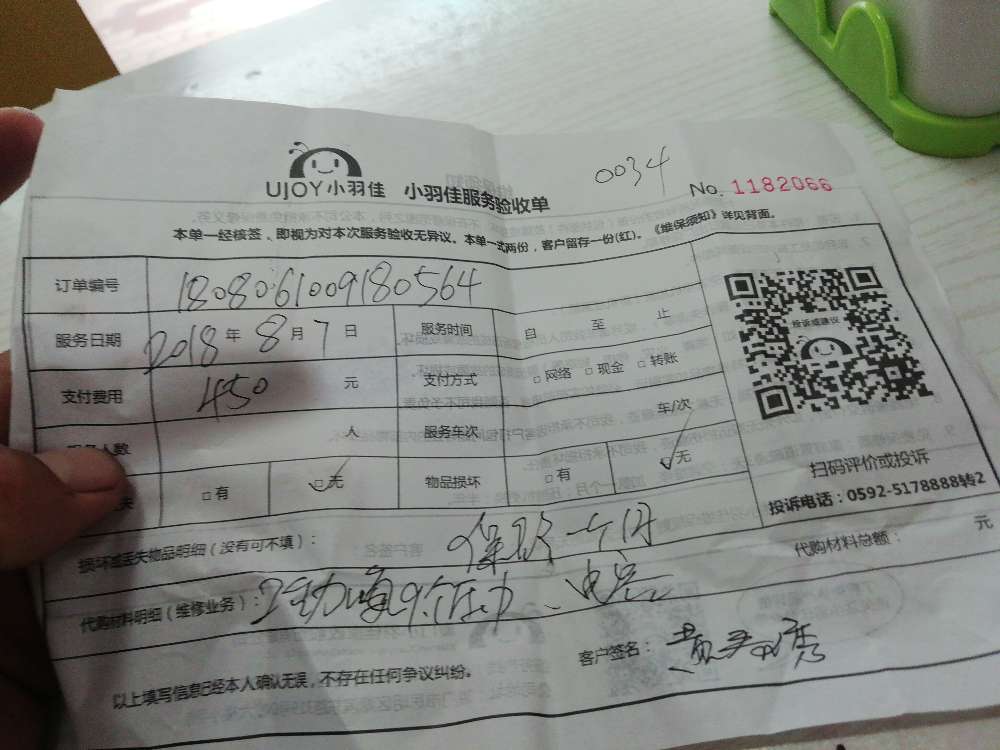 UJOY小羽佳 小羽佳服务验收单
0034
No. 1182066
本单一经核签、即视为对本次服务验收无异议。本单一式两份，客户留存一份(红)。《维保须知》详见背面。
订单编号 1808061009180564
服务日期 2018 年 8 月 7 日 服务时间 自 至 止
支付费用 450 元 支付方式 □网络 □现金 □转账
服务人数 人 服务车次 车/次
□有 □无 物品损坏 □有 □无
投诉或建议
扫码评价或投诉
投诉电话：0592-5178888转2
损坏或丢失物品明细（没有可不填）： 保修一个月
代购材料明细（维修业务）：
代购材料总额： 元
以上填写信息已经本人确认无误，不存在任何争议纠纷。
客户签名：